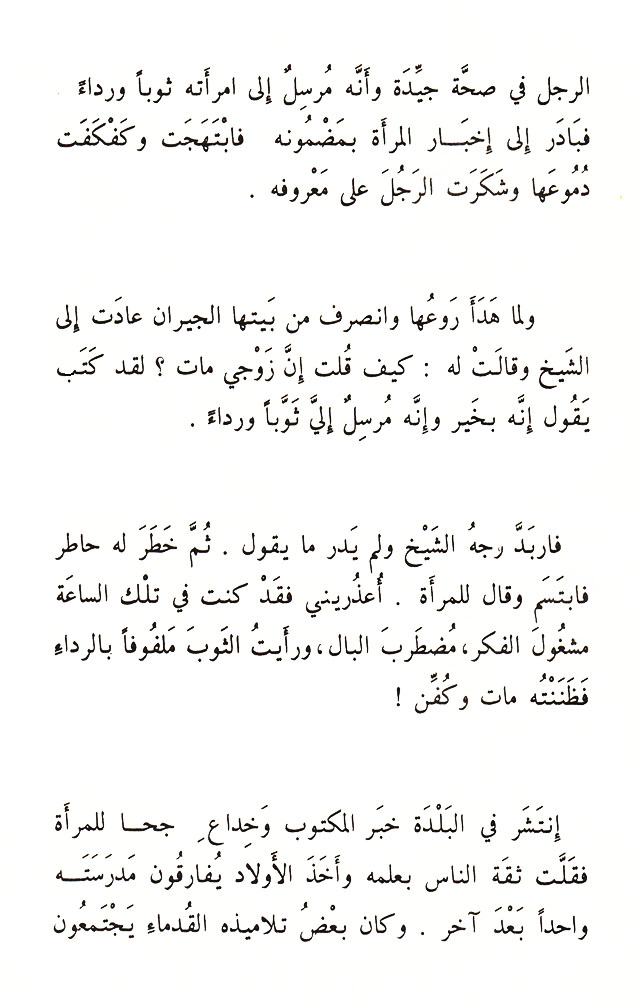 الرجل في صحَّة جيِّدَة وأَنَّه مُرسِلٌ إِلى امرأَته ثوباً ورداءً
فبَادَر إِلى إِخبَـــار المرأَة بمَضْمُونه فابْتَهَجَت وكَفْكَفَت
دُمُوعَها وشَكَرَت الرَجُلَ على مَعْروفه .
ولما هَدَأَ رَوعُها وانصرف من بَيتها الجيران عادَت إِلى
الشَيخ وقالَتْ له : كيف قُلت إِنَّ زَوْجي مات ؟ لقد كَتَب
يَقُول إِنَّه بخَير وإِنَّه مُرسِلٌ إِليَّ ثَوَّباً ورداءً .
فاربَدَّ رجهُ الشَيْخ ولم يَدر ما يقول . ثُمَّ خَطَرَ له حاطر
فابتَسَم وقال للمرأَة . أُعذُريني فقَدْ كنت في تلْك الساعَة
مشغُولَ الفكر، مُضطَربَ البال، ورأَيتُ الثَوبَ مَلفُوفاً بالرداءِ
فَظَنَنْتُه مات وكُفِّن !
إِنتَشَر في البَلْدَة خبَر المكتوب وَخِداع ِ جحـا للمرأَة
فقَلَّت ثقَة الناس بعلمه وأَخَذَ الأَولاد يُفارقُون مَدرَسَتَـــه
واحداً بَعْدَ آخر . وكان بعْضُ تلاميذه القُدماءِ يَجْتَمعُون